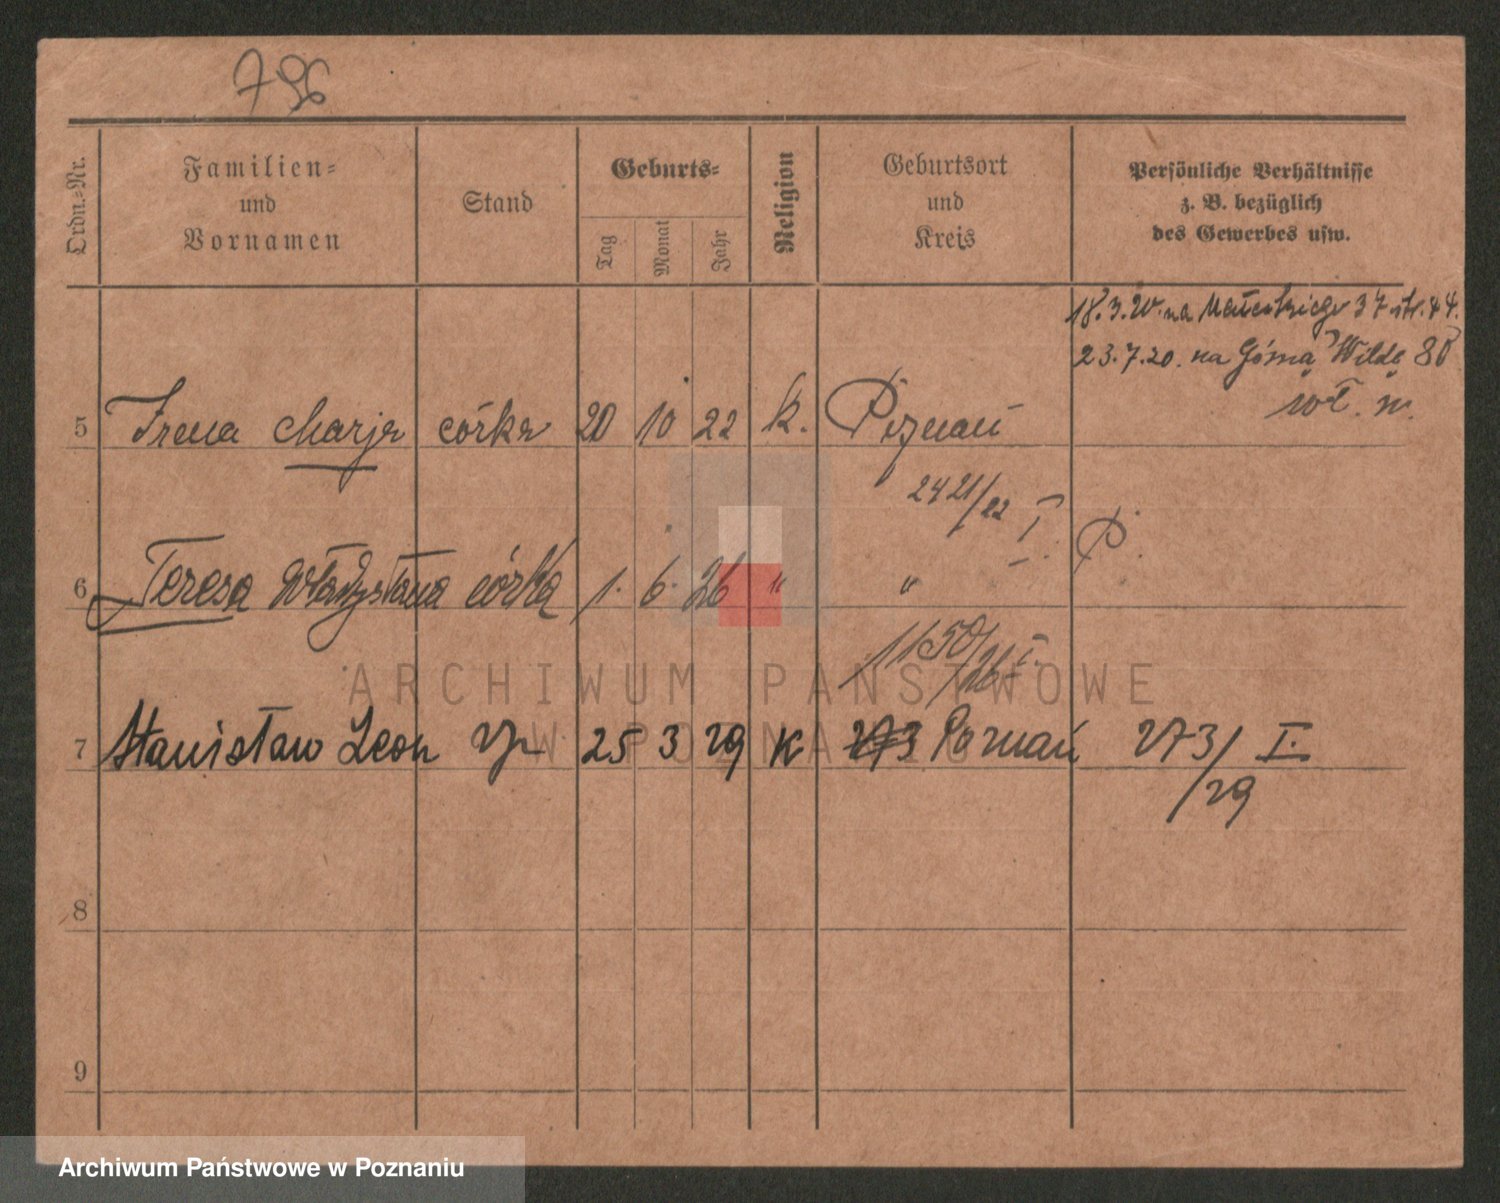 796
Ordn.-Nr.
Familien- und Vornamen
Stand
Geburts-
Tag
Monat
Jahr
Religion
Geburtsort und Kreis
Persönliche Verhältnisse
z. B. bezüglich
des Gewerbes usw.
18.3.20. na 37 str. 44.
23.7.20. na Górną Wildę 80
wł. m.
5 Irena Marja córka 20 10 22 k. Poznań
2421/22 I.
P.
6 Teresa Władysława córka 1. 6. 26 " "
1150/26 I.
7 Stanisław Leon 25 3 29 K 273 Poznań 273/29 I.
8
9
ARCHIWUM PAŃSTWOWE
W POZNANIU
Archiwum Państwowe w Poznaniu